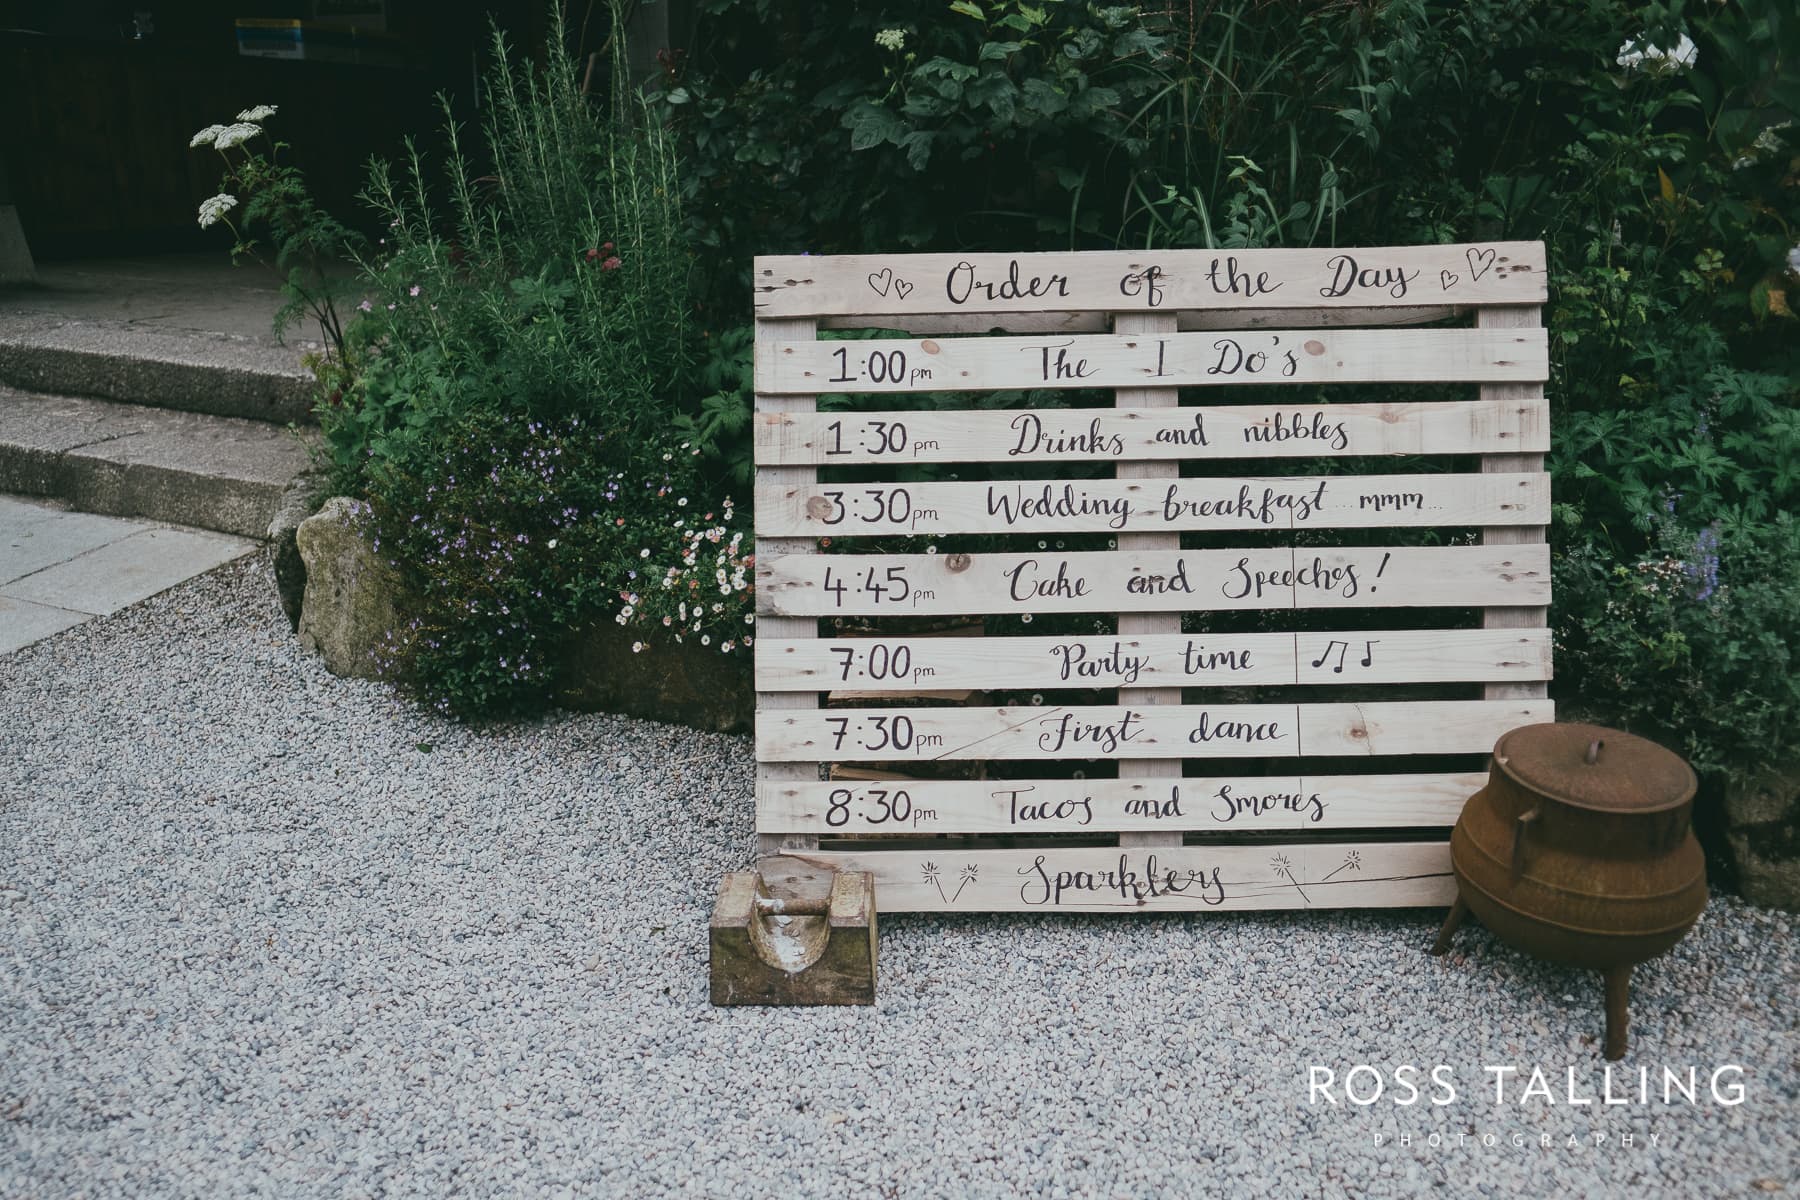 Order of the Day
1:00pm The I Do's
1:30pm Drinks and nibbles
3:30pm Wedding breakfast ...mmm...
4:45pm Cake and Speeches!
7:00pm Party time
7:30pm First dance
8:30pm Tacos and Smores
Sparklers
ROSS TALLING
PHOTOGRAPHY